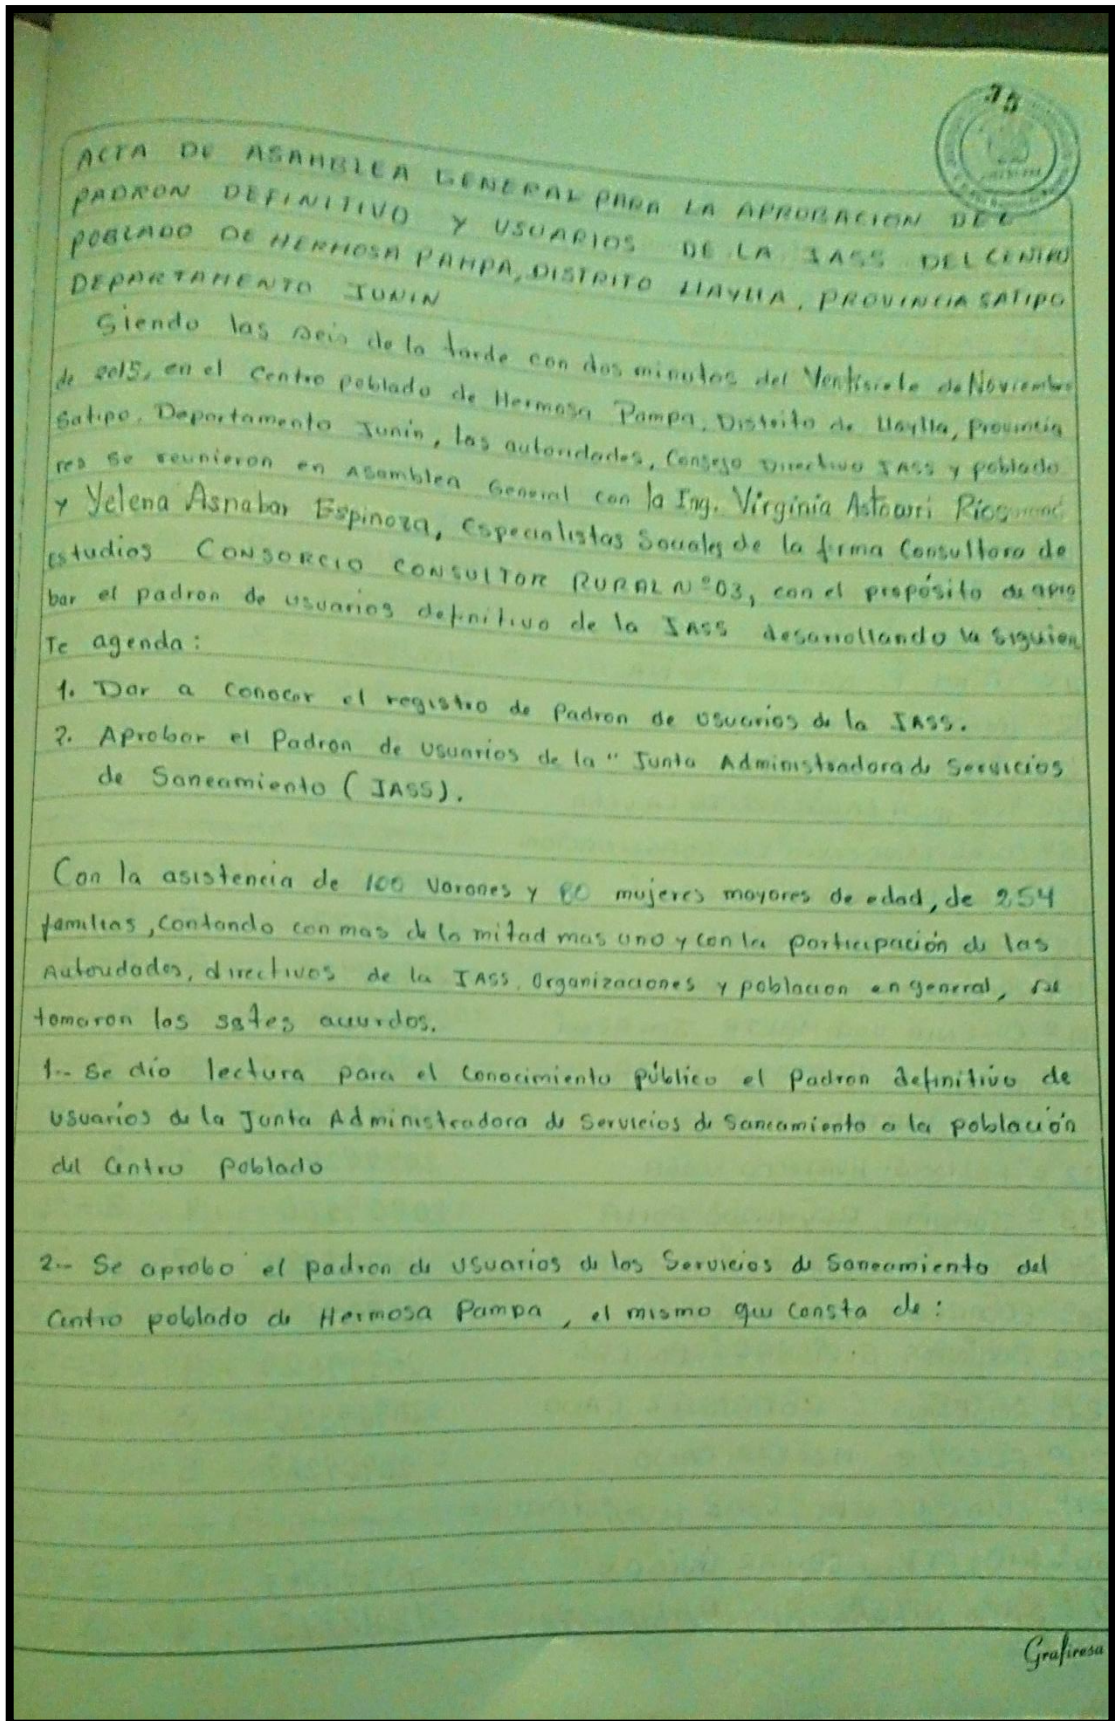 35
ACTA DE ASAMBLEA GENERAL PARA LA APROBACION DEL
PADRON DEFINITIVO Y USUARIOS DE LA JASS DEL CENTRO
POBLADO DE HERMOSA PAMPA, DISTRITO LLAYLLA, PROVINCIA SATIPO
DEPARTAMENTO JUNIN
Siendo las seis de la tarde con dos minutos del Ventisiete de Noviembre
de 2015, en el Centro poblado de Hermosa Pampa, Distrito de Llaylla, Provincia
Satipo, Departamento Junín, las autoridades, Consejo Directivo JASS y poblado
res se reunieron en Asamblea General con la Ing. Virginia Astouri
y Yelena Asnabar Espinoza, Especialistas Sociales de la firma Consultora de
estudios CONSORCIO CONSULTOR RURAL N°03, con el propósito de apro
bar el padron de usuarios definitivo de la JASS desarrollando la siguien
Te agenda:
1. Dar a conocer el registro de Padron de usuarios de la JASS.
2. Aprobar el Padron de usuarios de la " Junta Administradora de Servicios
de Saneamiento (JASS).
Con la asistencia de 100 Varones y 80 mujeres mayores de edad, de 254
familias, contando con mas de la mitad mas uno y con la participación de las
Autoridades, directivos de la JASS, Organizaciones y poblacion en general, se
tomaron los sgtes acuerdos.
1.- Se dío lectura para el Conocimiento público el Padron definitivo de
usuarios de la Junta Administradora de Servicios de Saneamiento a la población
del Centro Poblado
2.- Se aprobo el padron de usuarios de los Servicios de Saneamiento del
Centro poblado de Hermosa Pampa, el mismo que consta de:
Grafiresa